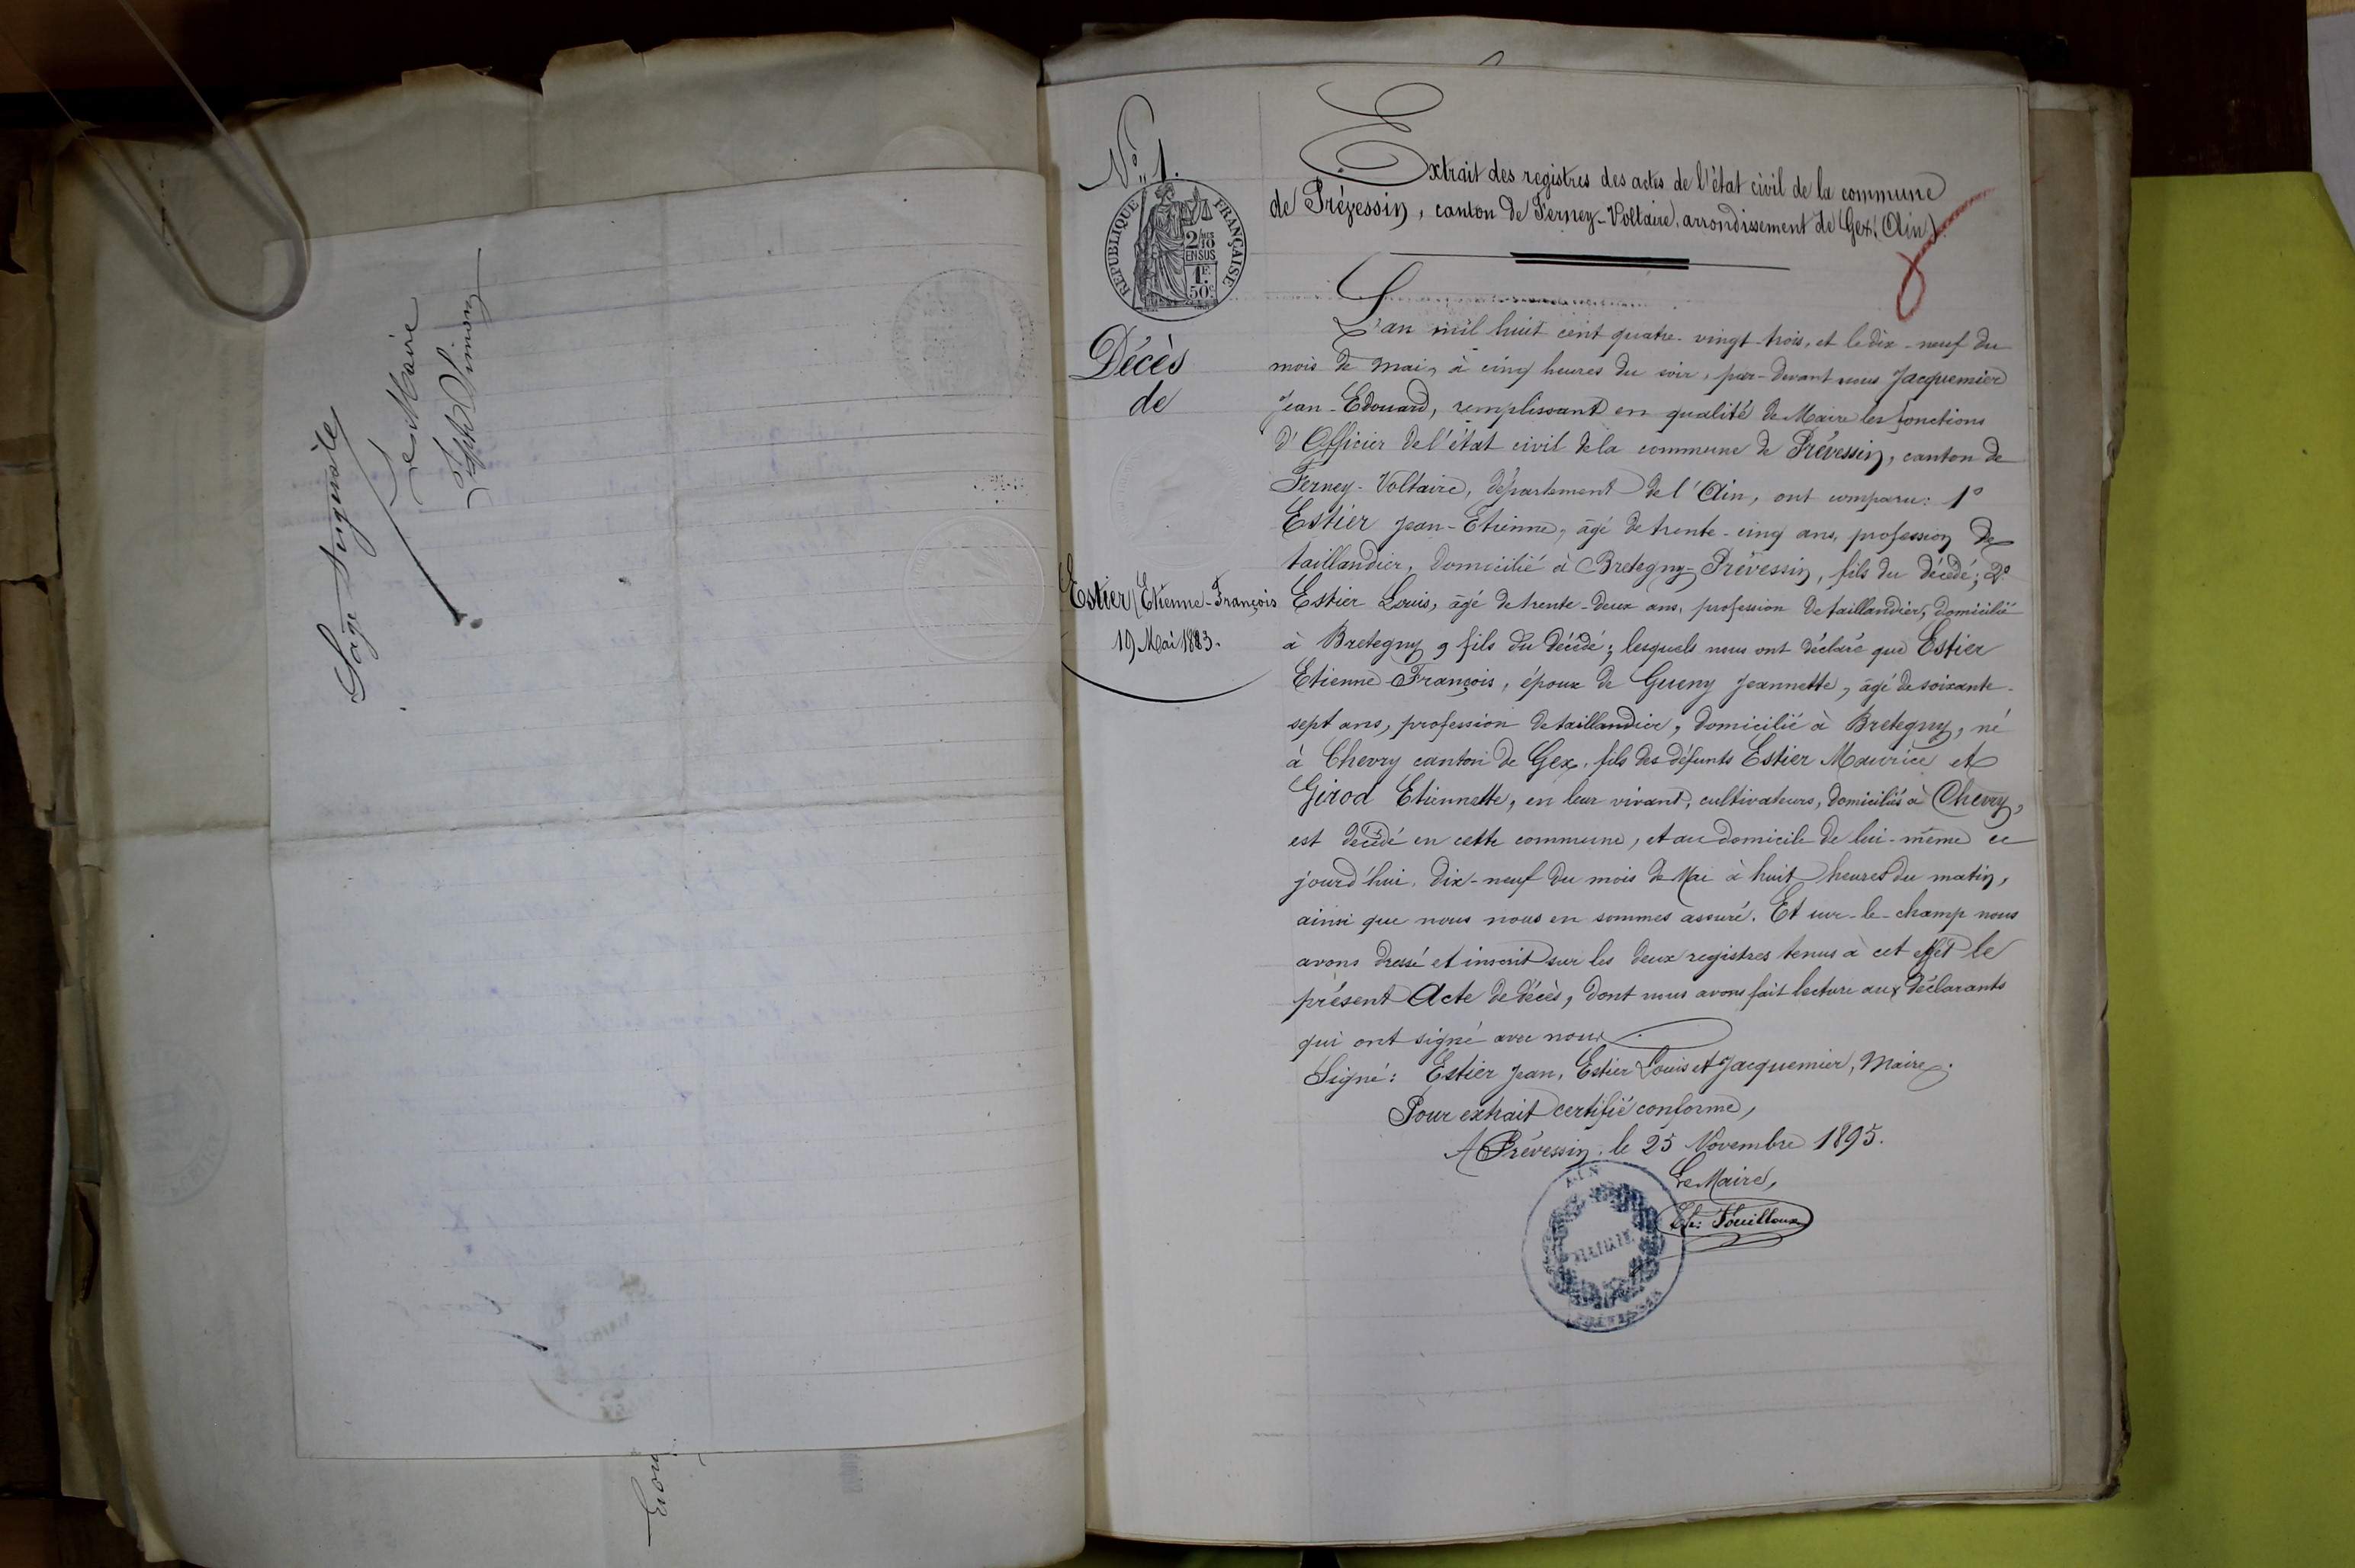 Page Hypothèse
Le Maire
N° 1.
RÉPUBLIQUE FRANÇAISE
2/10
EN SUS
1F.
50c
Décès
de
Estier Etienne-François
19 Mai 1883.
Extrait des registres des actes de l'état civil de la commune
de Prévessin, canton de Ferney-Voltaire, arrondissement de Gex, (Ain).
L'an mil huit cent quatre-vingt-trois, et le dix-neuf du
mois de Mai, à cinq heures du soir, par-devant nous Jacquemier
Jean-Edouard, remplissant en qualité de Maire les fonctions
d'Officier de l'état civil de la commune de Prévessin, canton de
Ferney-Voltaire, département de l'Ain, ont comparu: 1°
Estier Jean-Etienne, âgé de trente-cinq ans, profession de
taillandier, domicilié à Bretegny-Prévessin, fils du décédé; 2°
Estier Louis, âgé de trente-deux ans, profession de taillandier, domicilié
à Bretegny, fils du décédé; lesquels nous ont déclaré que Estier
Etienne-François, époux de Gueny Jeannette, âgé de soixante-
sept ans, profession de taillandier, domicilié à Bretegny, né
à Chevry canton de Gex, fils des défunts Estier Maurice et
Girod Etiennette, en leur vivant, cultivateurs, domiciliés à Chevry,
est décédé en cette commune, et au domicile de lui-même ce
jourd'hui, dix-neuf du mois de Mai à huit heures du matin,
ainsi que nous nous en sommes assuré. Et sur-le-champ nous
avons dressé et inscrit sur les deux registres tenus à cet effet le
présent Acte de décès, dont nous avons fait lecture aux déclarants
qui ont signé avec nous.
Signé: Estier Jean, Estier Louis et Jacquemier, Maire.
Pour extrait certifié conforme,
A Prévessin, le 25 Novembre 1895.
Le Maire,
Fouilloux
AIN
MAIRIE